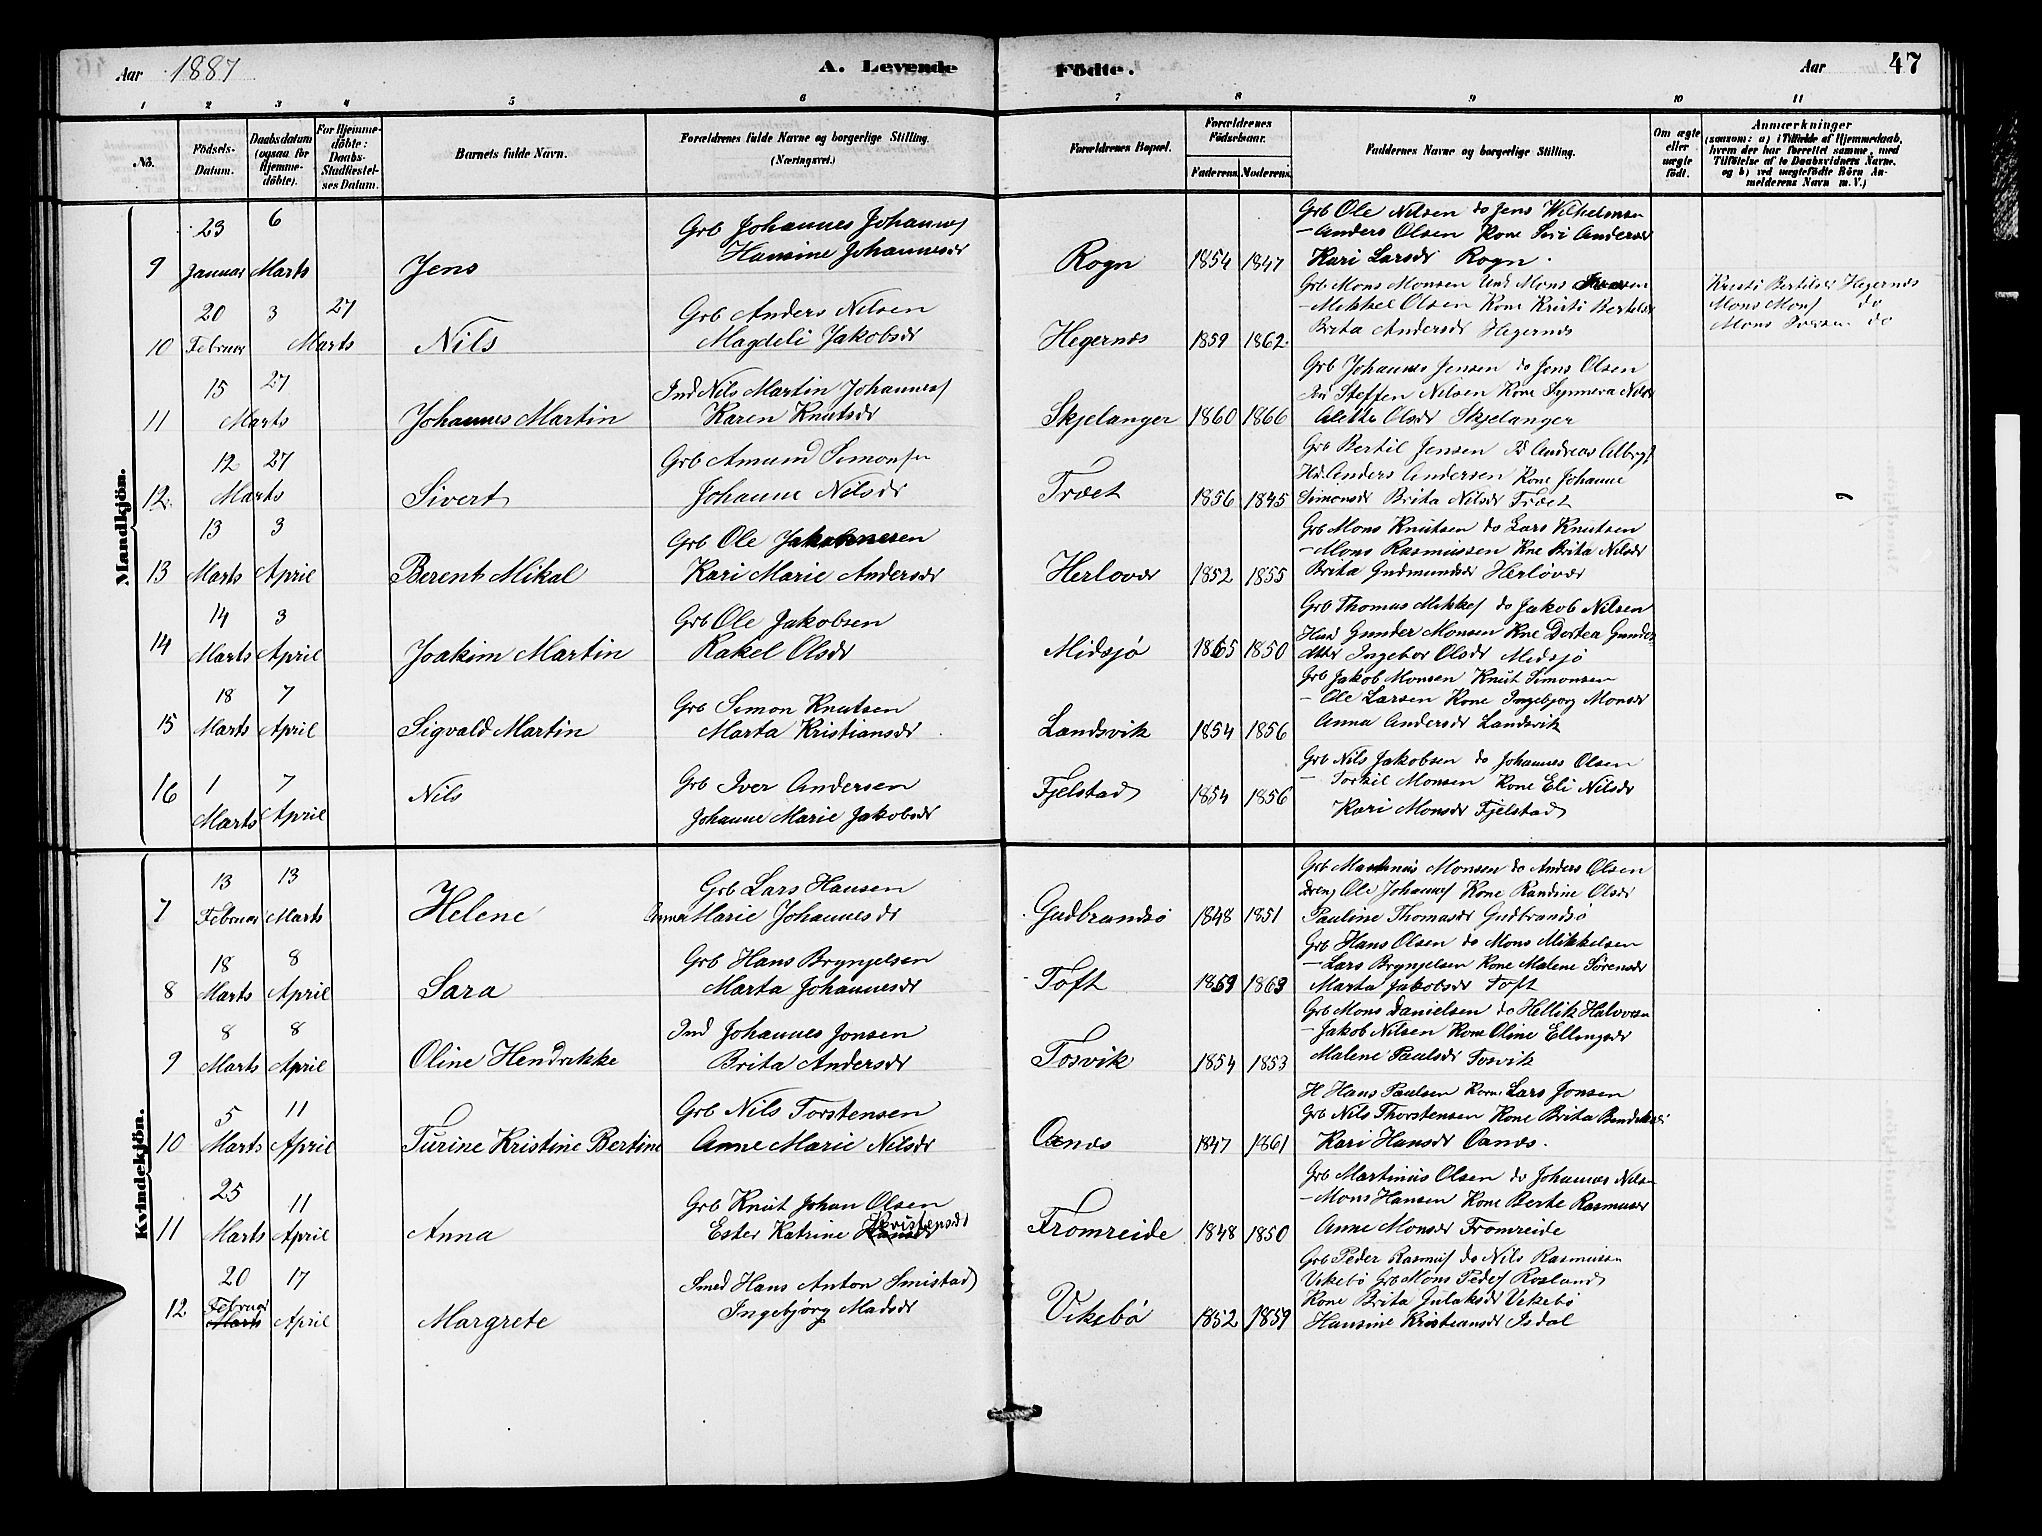 Aar 1887
A. Levende
Fødte.
Aar
47
1 2 3 4 5 6 7 8 9 10 11
No.
Fødsels-Datum.
Daabsdatum (ogsaa for Hjemmedøbte).
For Hjemmedøbte: Daabs-Stadfæstelses Datum.
Barnets fulde Navn.
Forældrenes fulde Navne og borgerlige Stilling. (Næringsvei.)
Forældrenes Bopæl.
Forældrenes Fødselsaar.
Faderens. Moderens.
Faddernes Navne og borgerlige Stilling.
Om ægte eller uægte født.
Anmærkninger
(saasom: a) i Tilfælde af Hjemmedaab, hvem der har forrettet samme, med Tilføielse af to Daabsvidners Navne. og b) ved uægtefødte Børn Anmelderens Navn m. V.)
Mandkjön.
9 23 Januar 6 Marts Jens
Grb Johannes Johannes/
Hansine Johannesdr
Rogn 1854 1847
Grb Ole Nilsen do Jens Wilhelmsen
- Anders Olsen Kone Siri Andersdr
Kari Larsdr Rogn.
10 20 Februar 3 27 Marts Nils
Grb Anders Nilsen
Magdeli Jakobsdr
Hegernes 1859 1862.
Grb Mons Monsen Und Mons Iversen
- Mikkel Olsen Kone Kristi Bertelsdr
Brita Andersdr Hegernes
Kristi Bertelsdr Hegernes
Mons Mons/ do
Mons Iversen do
11 15 27 Marts Johannes Martin
Ind Nils Martin Johannes/
Karen Knutsdr
Skjelanger 1860 1866
Grb Johannes Jensen do Jens Olsen
Steffen Nilsen Kone Synneva Nilsdr
Aletta Olsdr Skjelanger
12. 12 27 Marts Sivert
Grb Amund Simonsen
Johanne Nilsdr
Træet 1856 1845
Grb Bertil Jensen Andreas
Anders Andersen Kone Johanne
Simonsdr Brita Nilsdr Træet
13 13 Marts 3 April Berent Mikal
Grb Ole Johannesen
Kari Marie Andersdr
Herlovær 1852 1855
Grb Mons Knutsen do Lars Knutsen
- Mons Rasmussen Kne Brita Nilsdr
Brita Gudmundsdr Herlovær
14 14 Marts 3 April Joakim Martin
Grb Ole Jakobsen
Rakel Olsdr
Midsjø 1865 1850
Grb Thomas Mikkel/ do Jakob Nilsen
Gunder Monsen Kne Dortea Gunders
dtter Ingebor Olsdr Midsjø
15 18 Marts 7 April Sigvald Martin
Grb Simon Knutsen
Marta Kristiansdr
Landsvik 1854 1856
Grb Jakob Monsen Knut Simonsen
- Ole Larsen Kone Ingebjorg Monsdr
Anna Andersdr Landsvik
16 1 Marts 7 April Nils
Grb Iver Andersen
Johanne Marie Jakobsdr
Fjelstad 1854 1856
Grb Nils Jakobsen do Johannes Olsen
- Torkil Monsen Kone Eli Nilsdr
Kari Monsdr Fjelstad
Kvindekjön.
7 13 Februar 13 Marts Helene
Grb Lars Hansen
Anna Marie Johannesdr
Gudbrandsø 1848 1851
Grb Martinus Monsen do Anders Olsen
Dreng Ole Johannes/ Kone Randine Olsdr
Pauline Thomasdr Gudbrandsø
8 18 Marts 8 April Sara
Grb Hans Brynjelsen
Marta Johannesdr
Toft 1859 1863
Grb Hans Olsen do Mons Mikkelsen
- Lars Brynjelsen Kone Malene Sørensdr
Marta Jakobsdr Toft
9 8 Marts 8 April Oline Hendrikke
Ind Johannes Jonsen
Brita Andersdr
Tosvik 1854 1853
Grb Mons Danielsen do Hellik Halvorsen
- Jakob Nilsen Kone Oline Ellingsdr
Malene Paulsdr Tosvik
10 5 Marts 11 April Turine Kristine Bertine
Grb Nils Torstensen
Anne Marie Nilsdr
Oanes 1847 1861
H Hans Paulsen Lars Jonsen
Grb Nils Thorstensen Kone Brita
Kari Hansdr Oanes.
11 25 Marts 11 April Anna
Grb Knut Johan Olsen
Ester Katrine Kristensdr
Fromreide 1848 1850
Grb Martinus Olsen do Johannes Nilsen
- Mons Hansen Kone Berte Rasmusdr
Anne Monsdr Fromreide
12 20 Februar Marts 17 April Margrete
Smed Hans Anton Smistad
Ingebjørg Madsdr
Vikebø 1852 1859
Grb Peder Rasmus/ do Nils Rasmussen
Vikebø Grb Mons Peders/ Rosland
Kone Brita Gulaksdr Vikebø
Hansine Kristiansdr Isdal